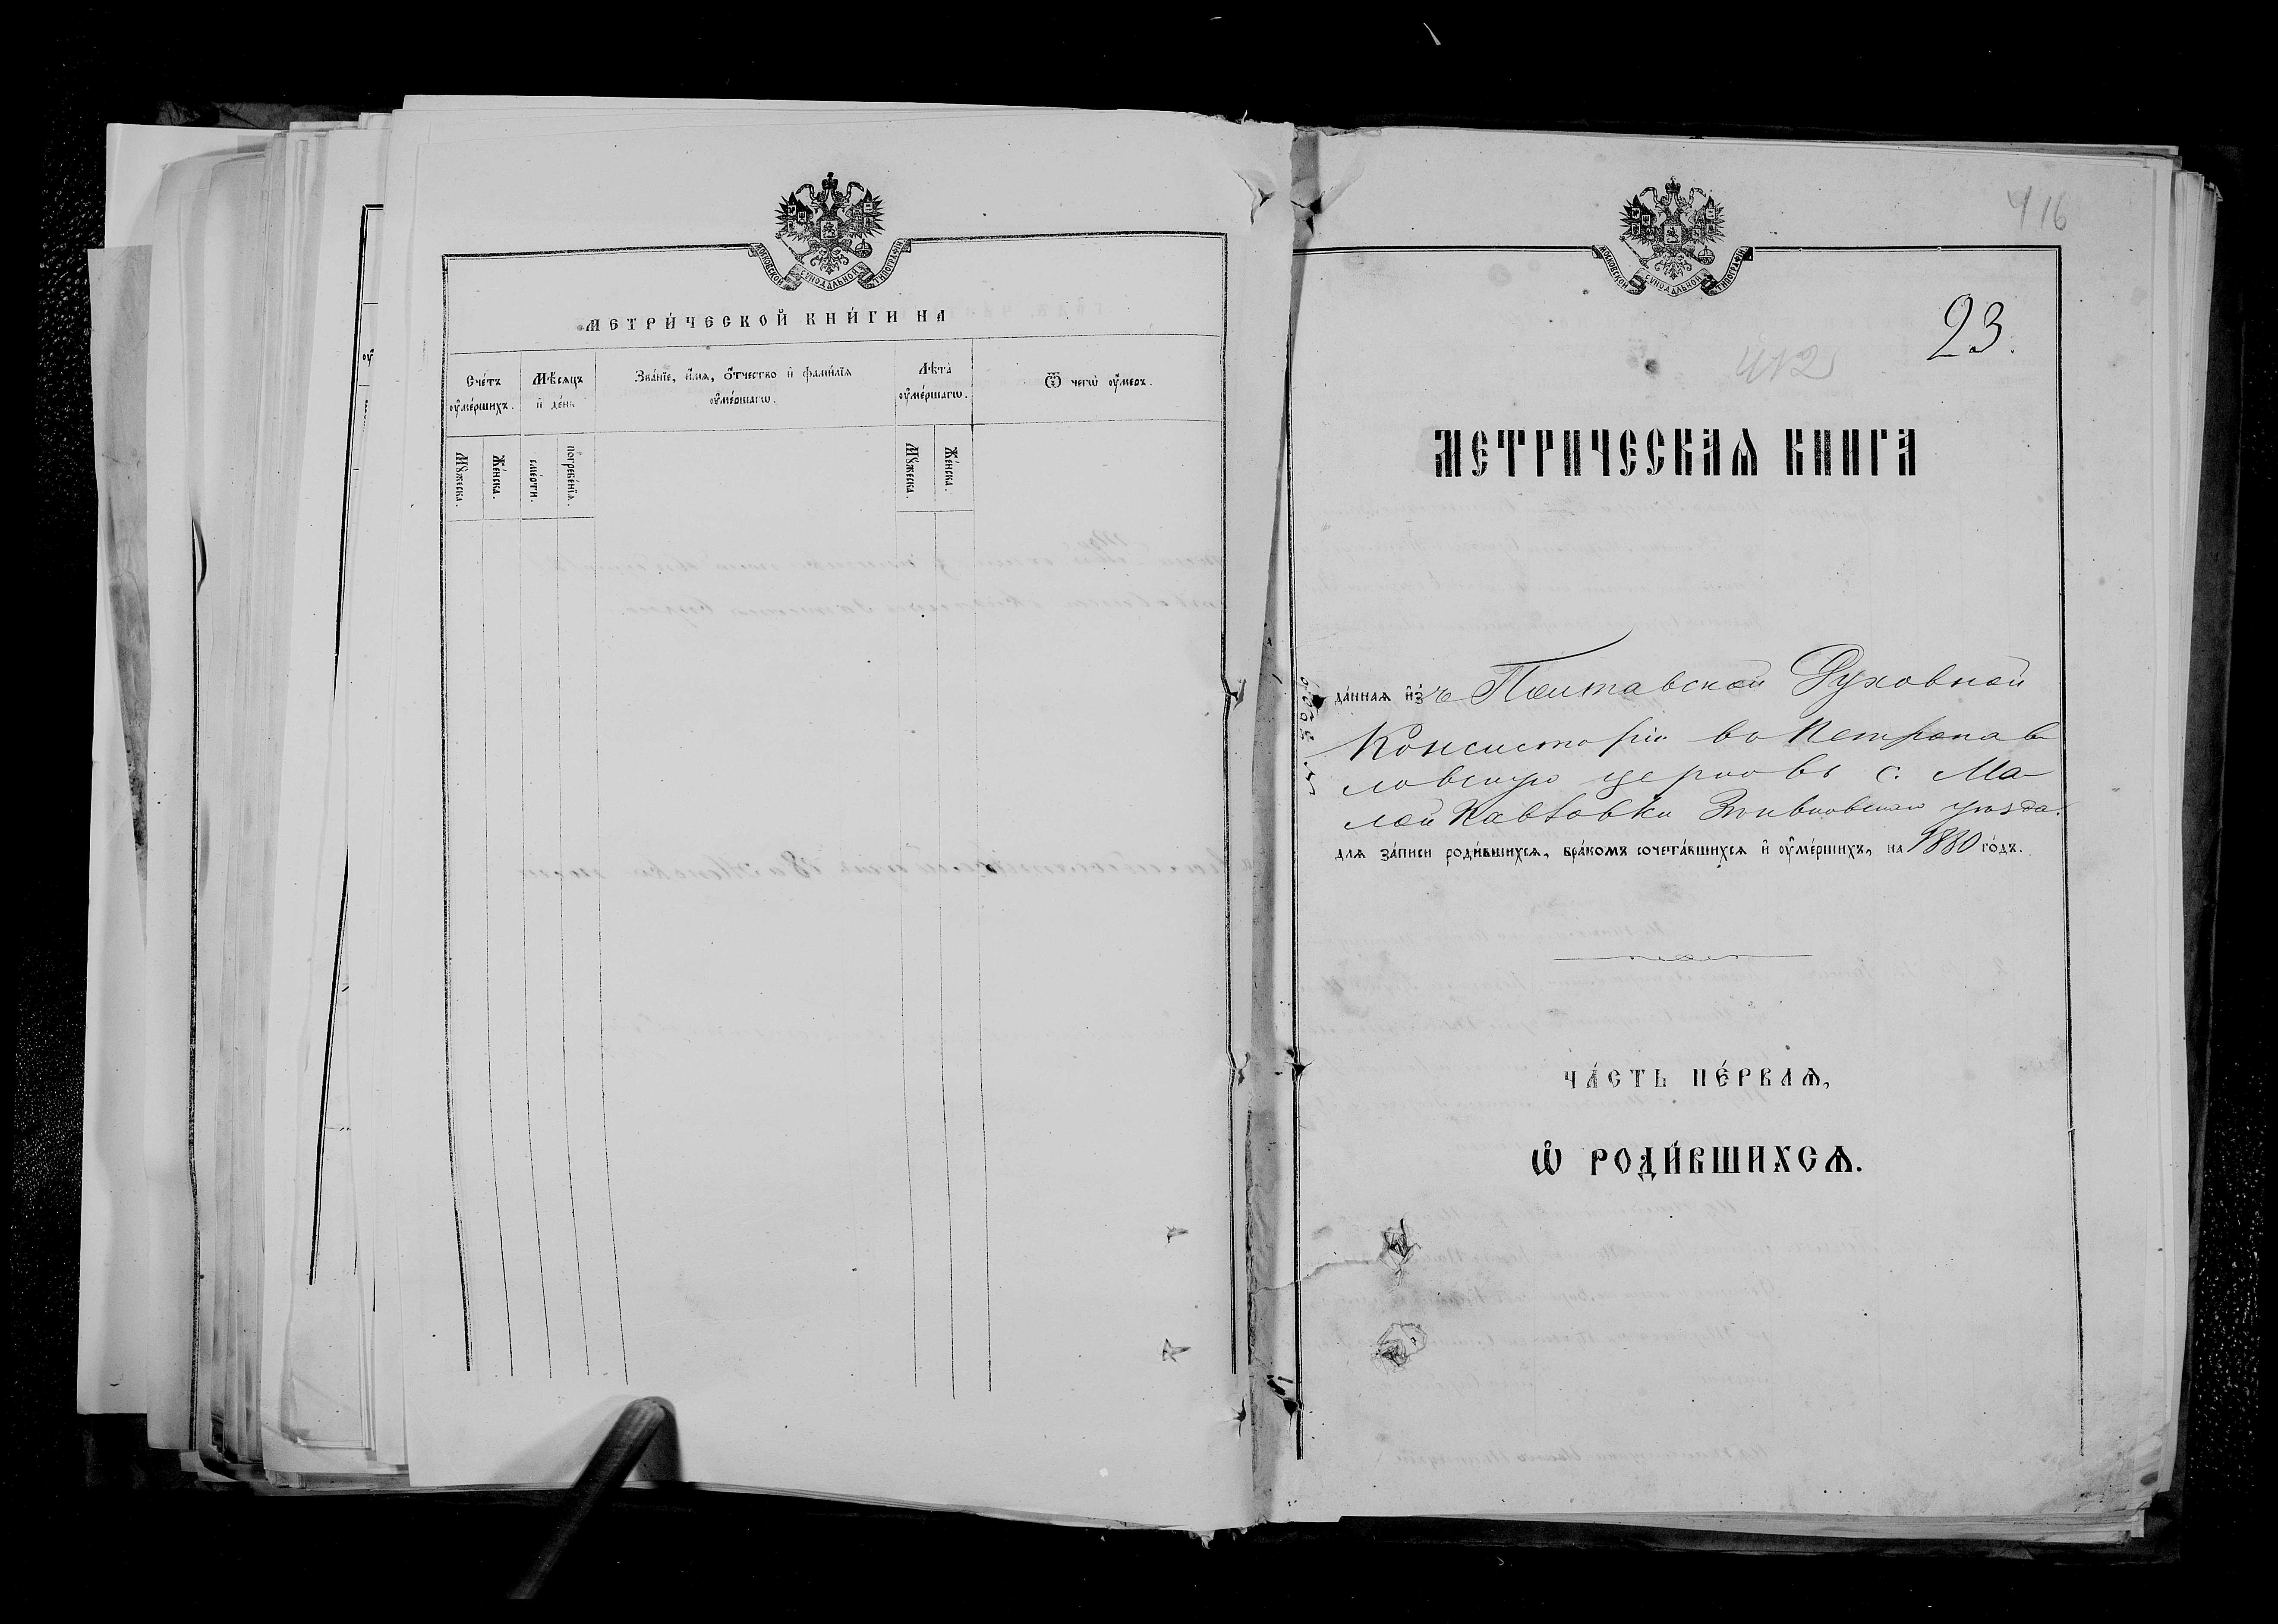 МОСКОВСКОЙ СѴНОДАЛЬНОЙ ТИПОГРАФІИ
МЕТРИ́ЧЕСКОЙ КНИ́ГИ НА
Сче́тъ оу҆ме́ршихъ.
Мѣ́сяцъ и҆ де́нь
Зва́нїе, и҆́мя, ѻ҆́тчество и҆ фами́лїя
оу҆ме́ршагѡ.
Лѣ́та оу҆ме́ршагѡ.
Ѿ чегѡ̀ оу҆́меръ.
Мꙋ́жеска.
Же́нска.
сме́рти.
погребе́нїя.
Мꙋ́жеска.
Же́нска.
МОСКОВСКОЙ СѴНОДАЛЬНОЙ ТИПОГРАФІИ
416
23.
412
МЕТРИЧЕСКАѦ КНИГА
да́нная и҆зъ Полтавской Духовной
Консисторіи во Петропав
ловскую церковь с. Ма-
лой Павловки Зѣньковскаго уѣзда.
для за́писи роди́вшихся, бра́комъ сочета́вшихся и҆ оу҆ме́ршихъ, на 1880 го́дъ.
ЧА́СТЬ ПЕ́РВАѦ,
Ѡ҆ РОДИ́ВШИХСѦ.